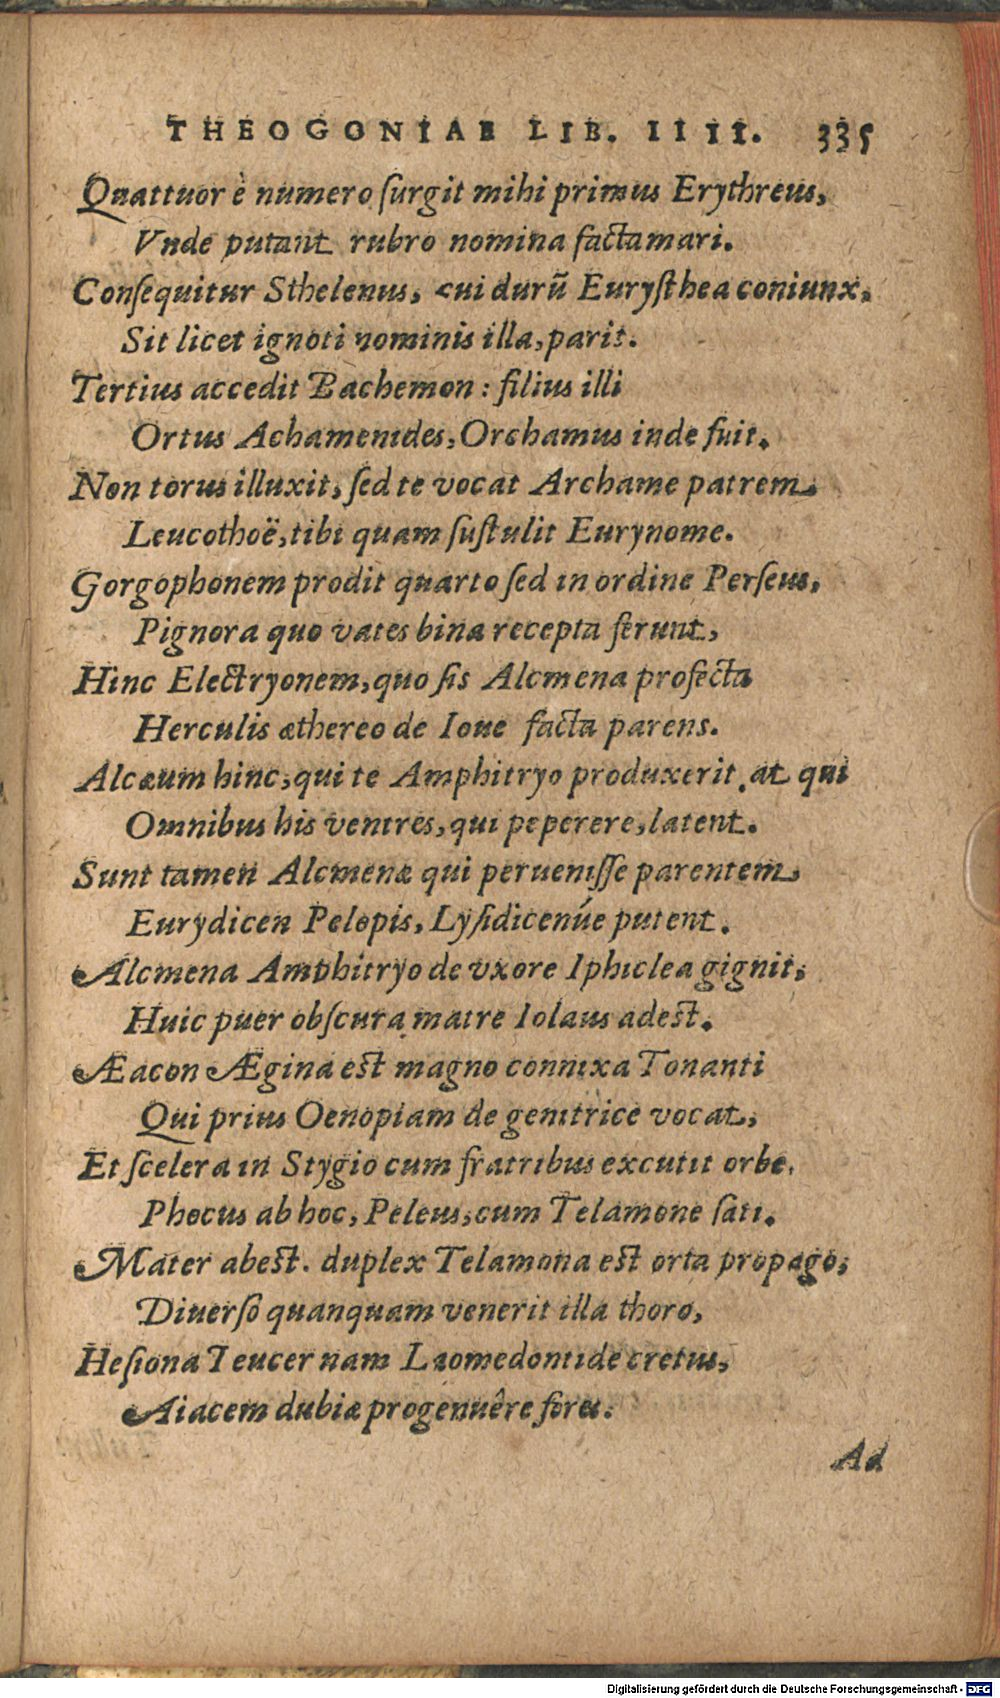 THEOGONIAE LIB. IIII. 335
Quattuor è numero ſurgit mihi primus Erythreus,
Vnde putant rubro nomina facta mari.
Conſequitur Sthelenus, cui durū Euryſthea coniunx,
Sit licet ignoti nominis illa, parit.
Tertius accedit Bachemon: filius illi
Ortus Achamenides, Orchamus inde fuit.
Non torus illuxit, ſed te vocat Archame patrem
Leucothoë, tibi quam ſuſtulit Eurynome.
Gorgophonem prodit quarto ſed in ordine Perſeus,
Pignora quo vates bina recepta ferunt,
Hinc Electryonem, quo ſis Alcmena profecta
Herculis æthereo de Ioue facta parens.
Alcæum hinc, qui te Amphitryo produxerit. at qui
Omnibus his ventres, qui peperere, latent.
Sunt tamen Alcmenæ qui perueniſſe parentem
Eurydicen Pelopis, Lyſidicenúe putent.
Alcmena Amphitryo de vxore Iphiclea gignit,
Huic puer obſcura matre Iolaus adest.
Æacon Ægina est magno connixa Tonanti
Qui prius Oenopiam de genitrice vocat,
Et ſcelera in Stygio cum fratribus excutit orbe.
Phocus ab hoc, Peleus, cum Telamone ſati.
Mater abest. duplex Telamona est orta propago,
Diuerſo quanquam venerit illa thoro,
Heſiona Teucer nam Laomedontide cretus,
Aiacem dubiæ progenuêre feræ.
Ad
Digitalisierung gefördert durch die Deutsche Forschungsgemeinschaft - DFG